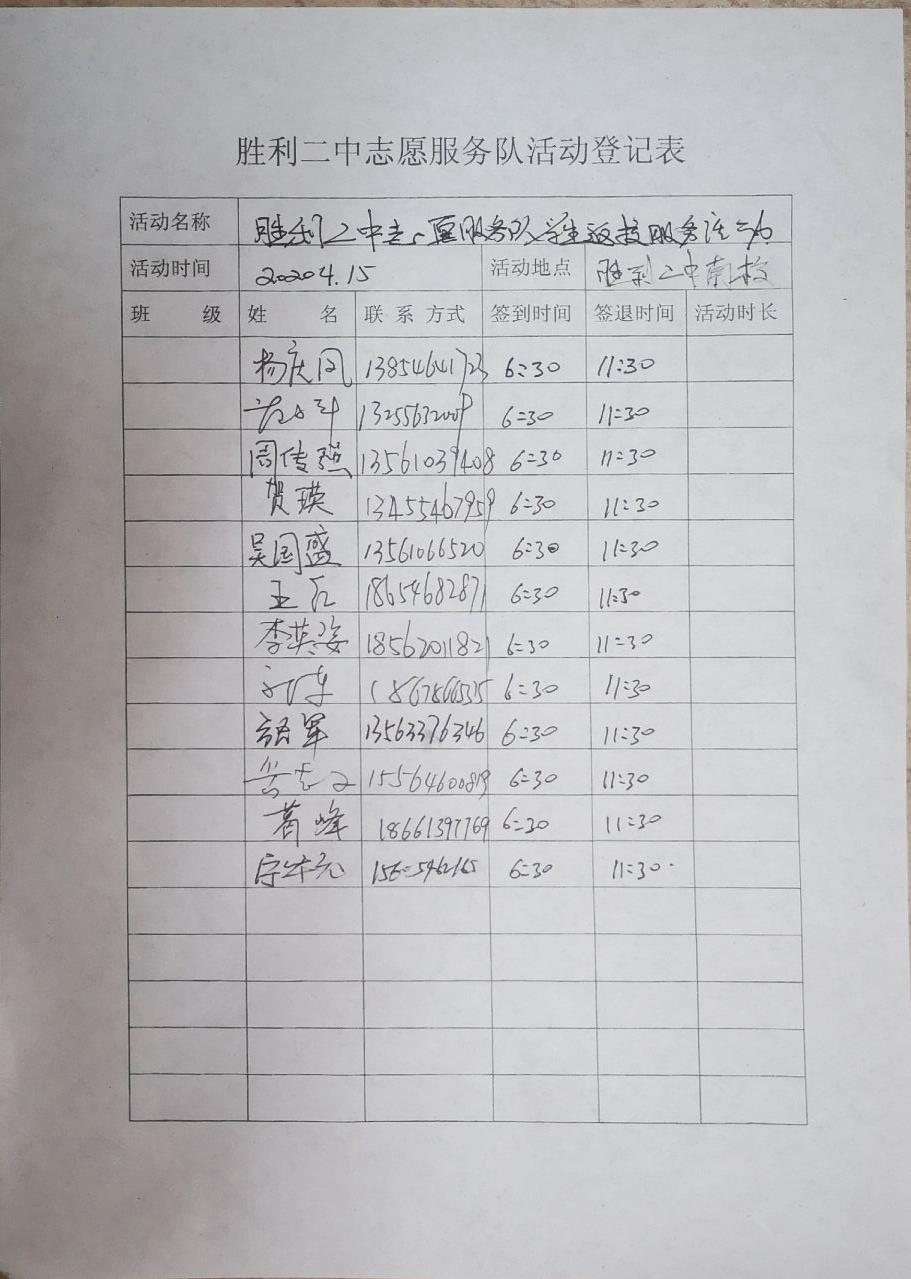 胜利二中志愿服务队活动登记表
活动名称 胜利二中志愿服务队学生返校服务活动
活动时间 2020 4.15 活动地点 胜利二中南校
班 级 姓 名 联 系 方式 签到时间 签退时间 活动时长
杨庆凤 13854641723 6:30 11:30
13255632009 6:30 11:30
周传强 13561039408 6:30 11:30
贺瑛 13455467959 6:30 11:30
吴国盛 13561066520 6:30 11:30
王 18654682871 6:30 11:30
李英姿 18562011821 6:30 11:30
6:30 11:30
军 13563376346 6:30 11:30
15564600819 6:30 11:30
葛峰 18661397769 6:30 11:30
6:30 11:30